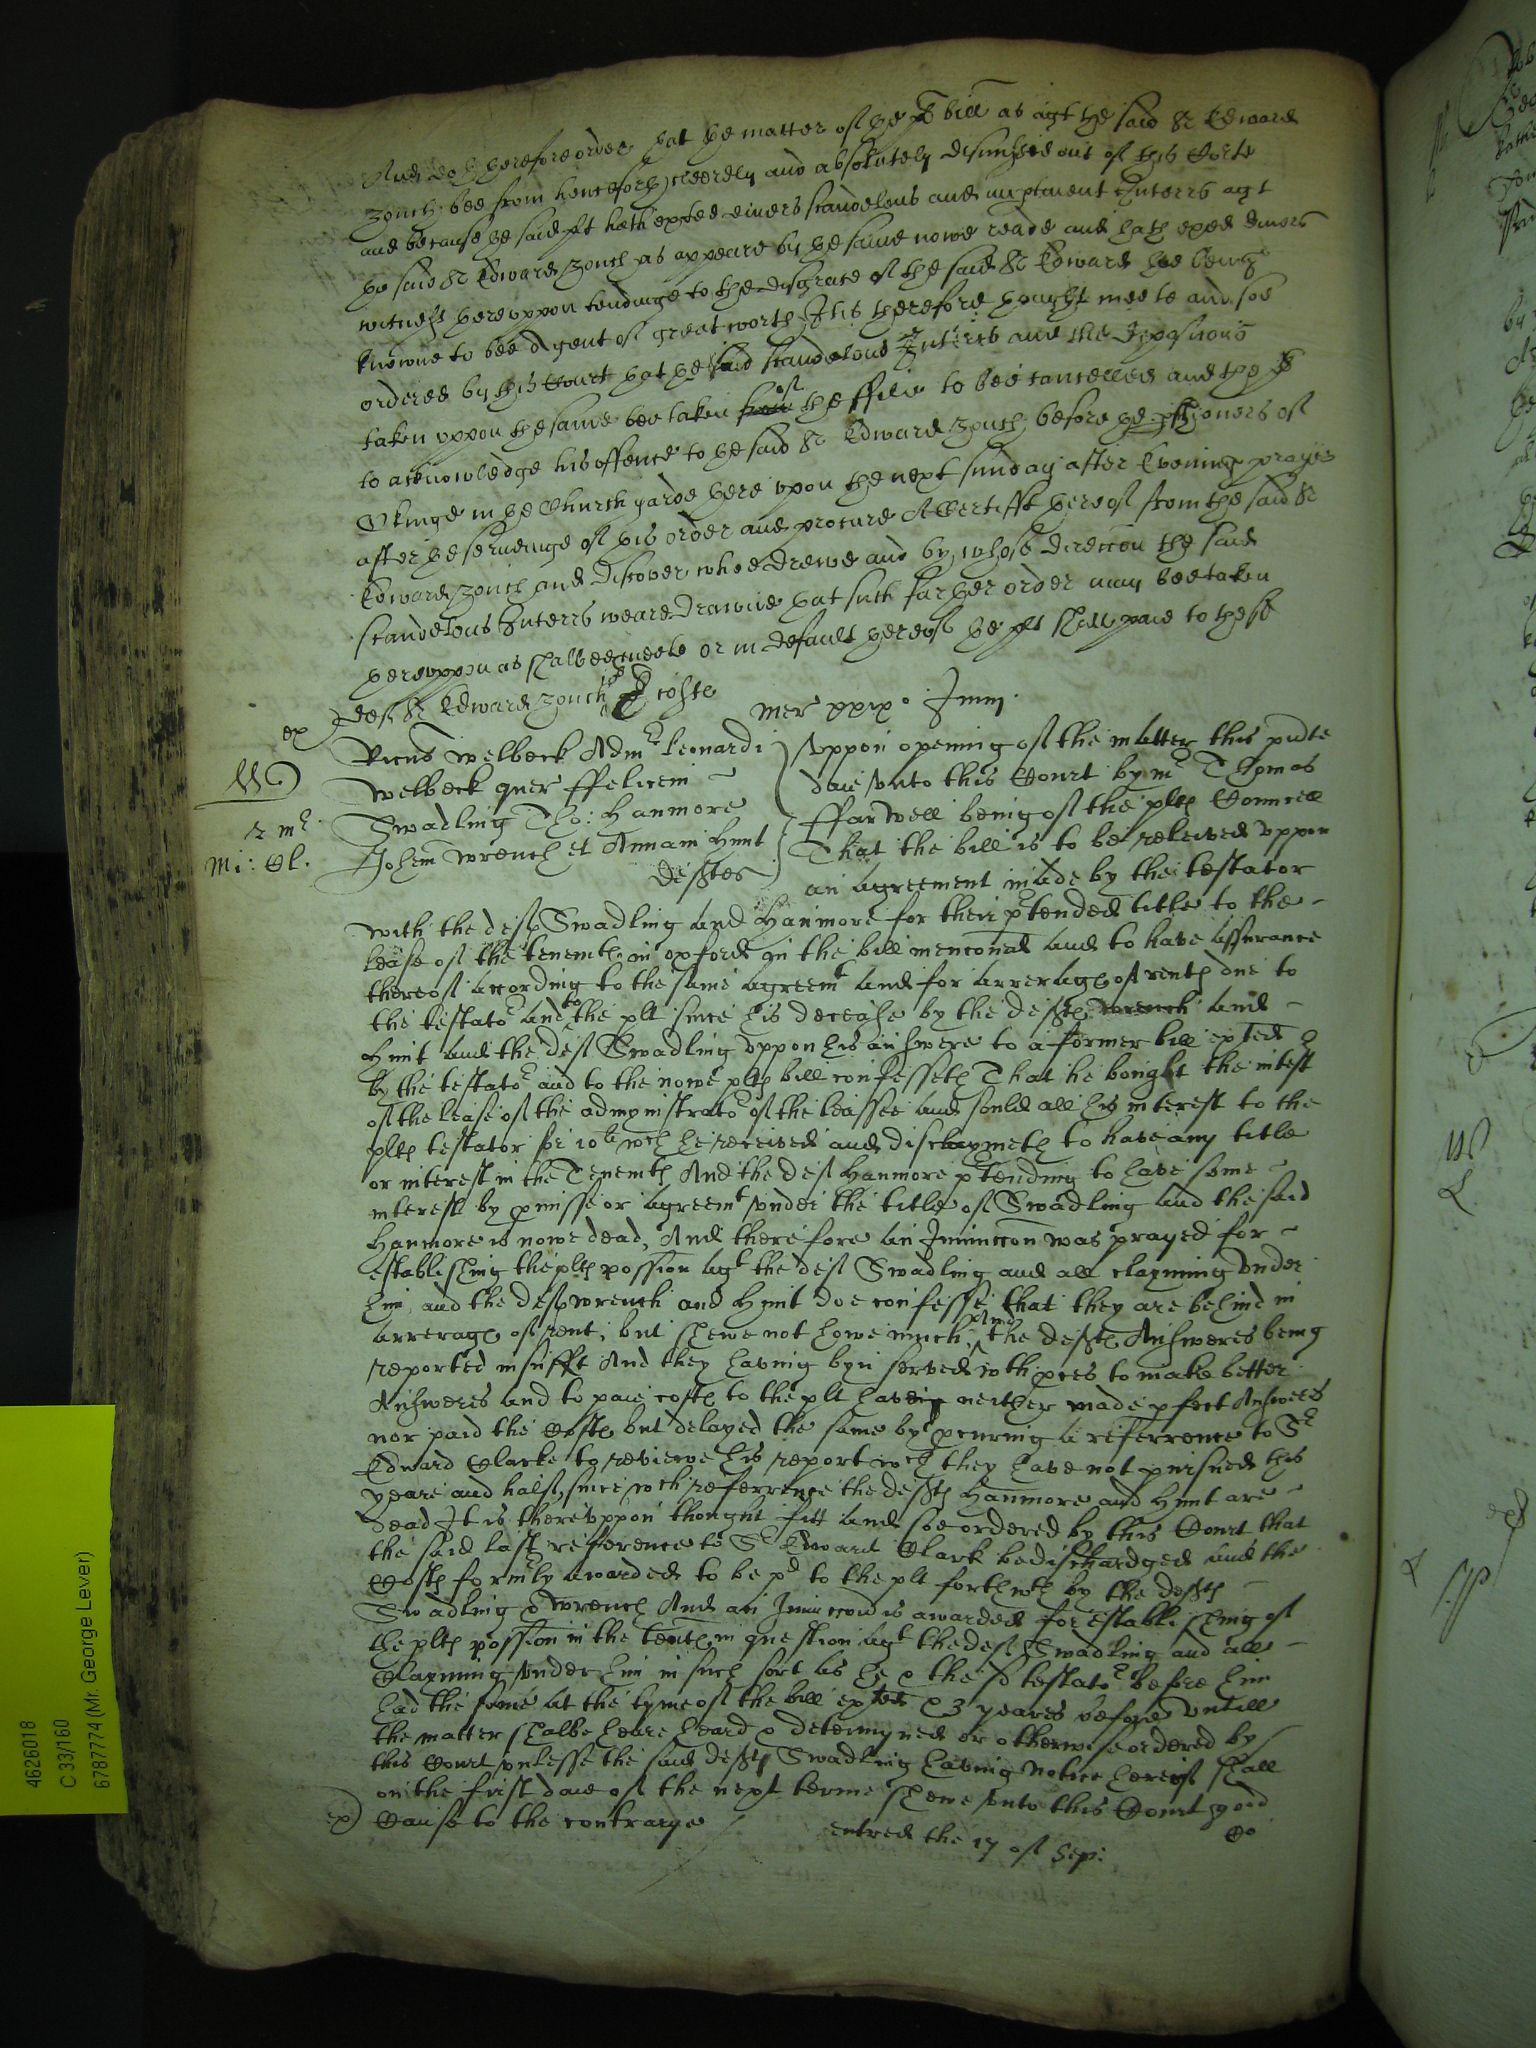 And doth therefore order that the matter of the pl bill as agt the said Sr Edward
Zouch bee from henceforth cleerely and absolutely dismissed out of this Corte
and because the said plt hath exhted divers scandelous and impertinent Interrs agt
the said Sr Edward Zouch as appeare by the same nowe reade and hath exed divers
witnesses thereuppon tendinge to the disgrace of the said Sr Edward hee being
knowne to bee a gent of great worth It is therefore thought meete and soe
ordered by this Court that the said scandelous Interrs and the depositons
taken uppon the same bee taken from of the ffile to bee cancelled and the pl
to acknowledge his offence to the said Sr Edward Zouch before the pishioners of
Okinge in the Church yarde there upon the next Sunday after Evening prayer
after the servinge of this order and procure A Certifft thereof from the said Sr
Edward Zouch and discover whoe drewe and by whose direccon the said
scandelous Interrs weare drawne that such further order may bee taken
thereuppon as shalbee meete or in default thereof the plt shall paie to the sd
deft Sr Edward Zouch costs
Mer xxix o Junij
ex
Ricus Welbeck Admr Leonardi
Welbeck quer ffelicem
Swadling Tho: Hanmore
Johem Wrench et Annam Hunt
deftes
W
r mr
Mi: Cl.
Uppon opening of the matter this pnte
daie unto this Court by mr Thomas
ffarwell being of the plts Councell
That the bill is to be releived uppon
an agreement made by the testator
with the deftes Swadling and Hanmore for their ptended title to the
lease of the tenemts in Oxford in the bill menconed and to have assurance
thereof according to the same agreemt and for arrerages of rents due to
the testator and to the plt since his decease by the deftes Wrench and
Hunt and the deft Swadling uppon his answere to a former bill exhted
by the testator and to the nowe plts bill confesseth That he bought the intest
of the lease of the admynistrator of the leassee and sould all his interest to the
plts testator for 10li wch he received and disclaymeth to have any title
or interest in the Tenemts And the deft Hanmore ptending to have some
interest by pmisse or agreemt under the title of Swadling and the said
Hanmore is nowe dead, And therefore an Iniunccon was prayed for
establishing the plts possion agt the deft Swadling and all clayming under
him, and the deftes Wrench and Hunt doe confesse that they are behind in
arrerages of rent, but shewe not howe much, And the deftes Answeres being
reported insufft And they having byn served wth pces to make better
Answeres and to paie costs to the plt have neither made pfect Answeres
nor paid the Costs but delayed the same by pcuring a referrence to Sr
Edward Clarke to reviewe his report wch they have not pursued this
yeare and halfe, since wch referrence the deftes Hanmore and Hunt are
dead It is thereuppon thought fitt and soe ordered by this Court that
the said last refference to Sr Edward Clark be dischardged and the
Costs formrly awarded to be pd to the plt forthwth by the deftes
Swadling & Wrench And an Iniunccon is awarded for establishing of
the plts possion in the tents in question agt the deft Swadling and all
Clayming under him in such sort as he & the sd testator before him
had the same at the tyme of the bill exhted & 3 yeares before untill
the matter shalbe heare heard & determyned or otherwise ordered by
this Court unlesse the said deft Swadling having notice hereof shall
on the first daie of the next terme shewe unto this Court good
ex Cause to the contrarye
Co
entred the 17 of Sep:
4626018
C 33/160
6787774 (Mr. George Lever)